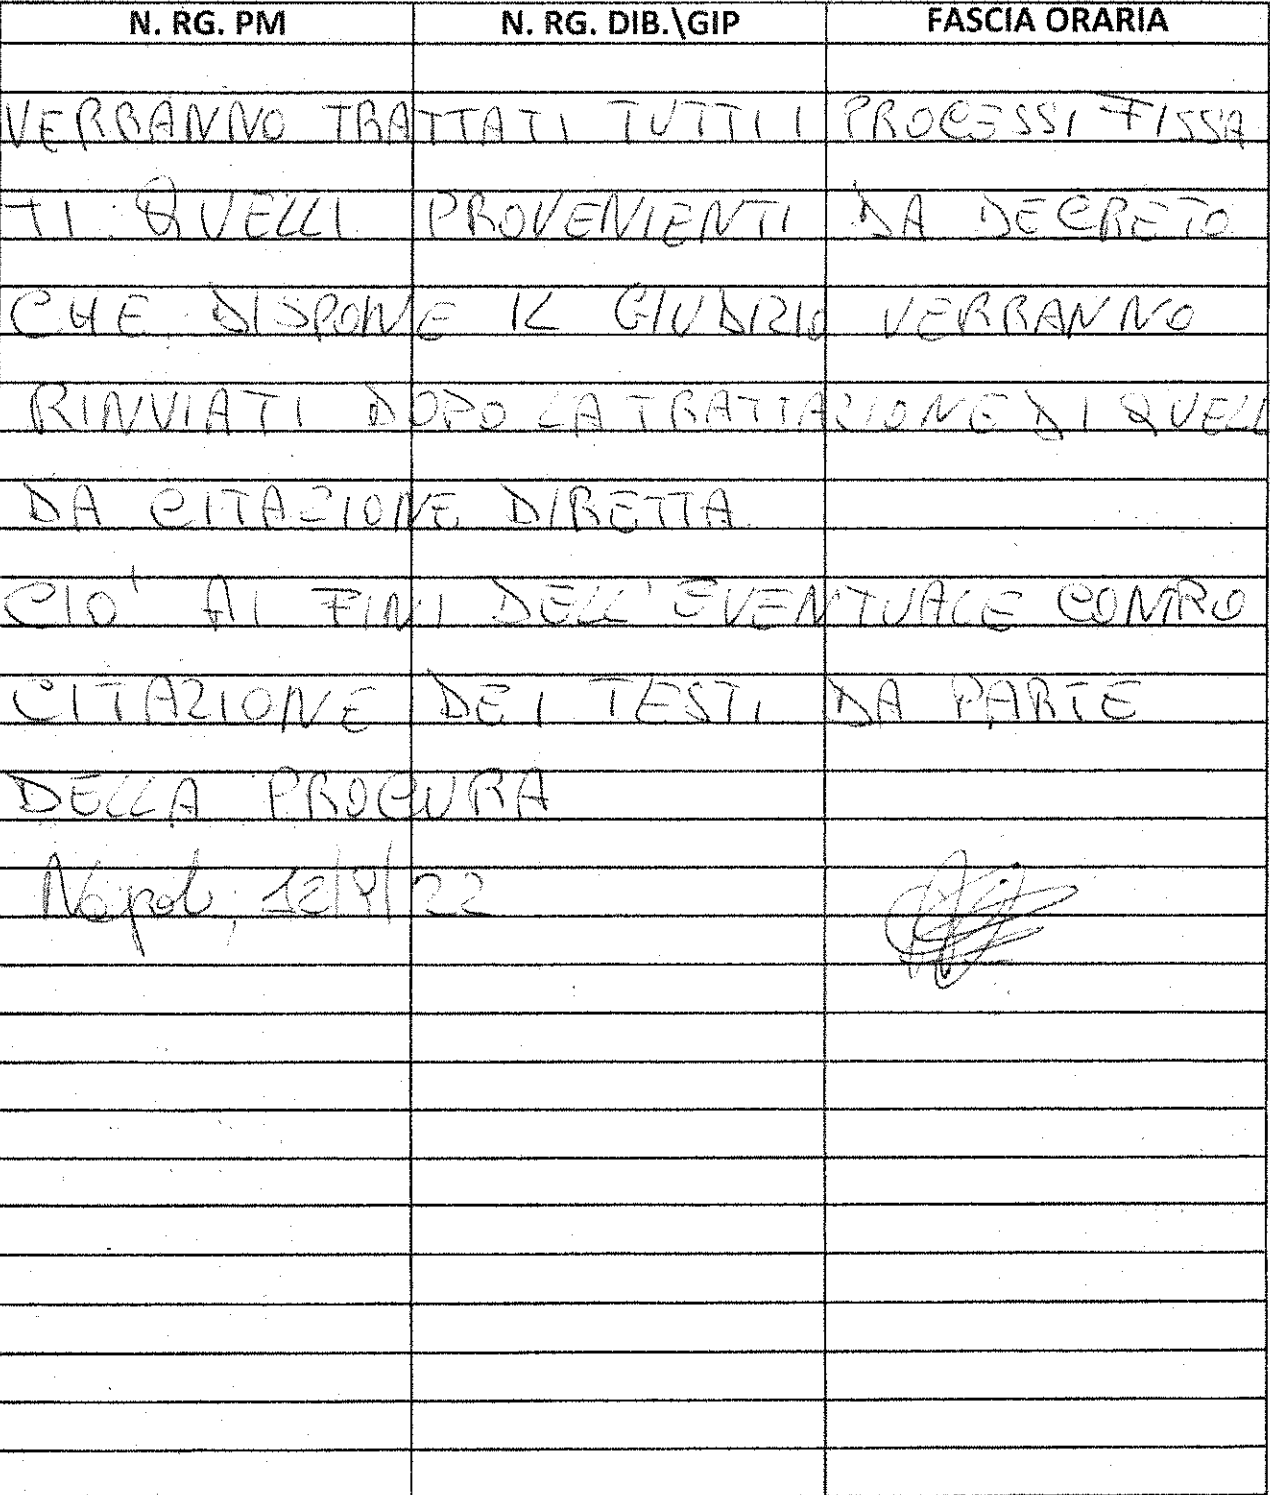 N. RG. PM N. RG. DIB.\GIP FASCIA ORARIA
VERRANNO TRATTATI TUTTI I PROCESSI FISSA
TI. QUELLI PROVENIENTI DA DECRETO
CHE DISPONE IL GIUDIZIO VERRANNO
RINVIATI DOPO LA TRATTAZIONE DI QUELL
DA CITAZIONE DIRETTA
CIO' AI FINI DELL'EVENTUALE CONTRO
CITAZIONE DEI TESTI DA PARTE
DELLA PROCURA
Napoli, 12/9/22